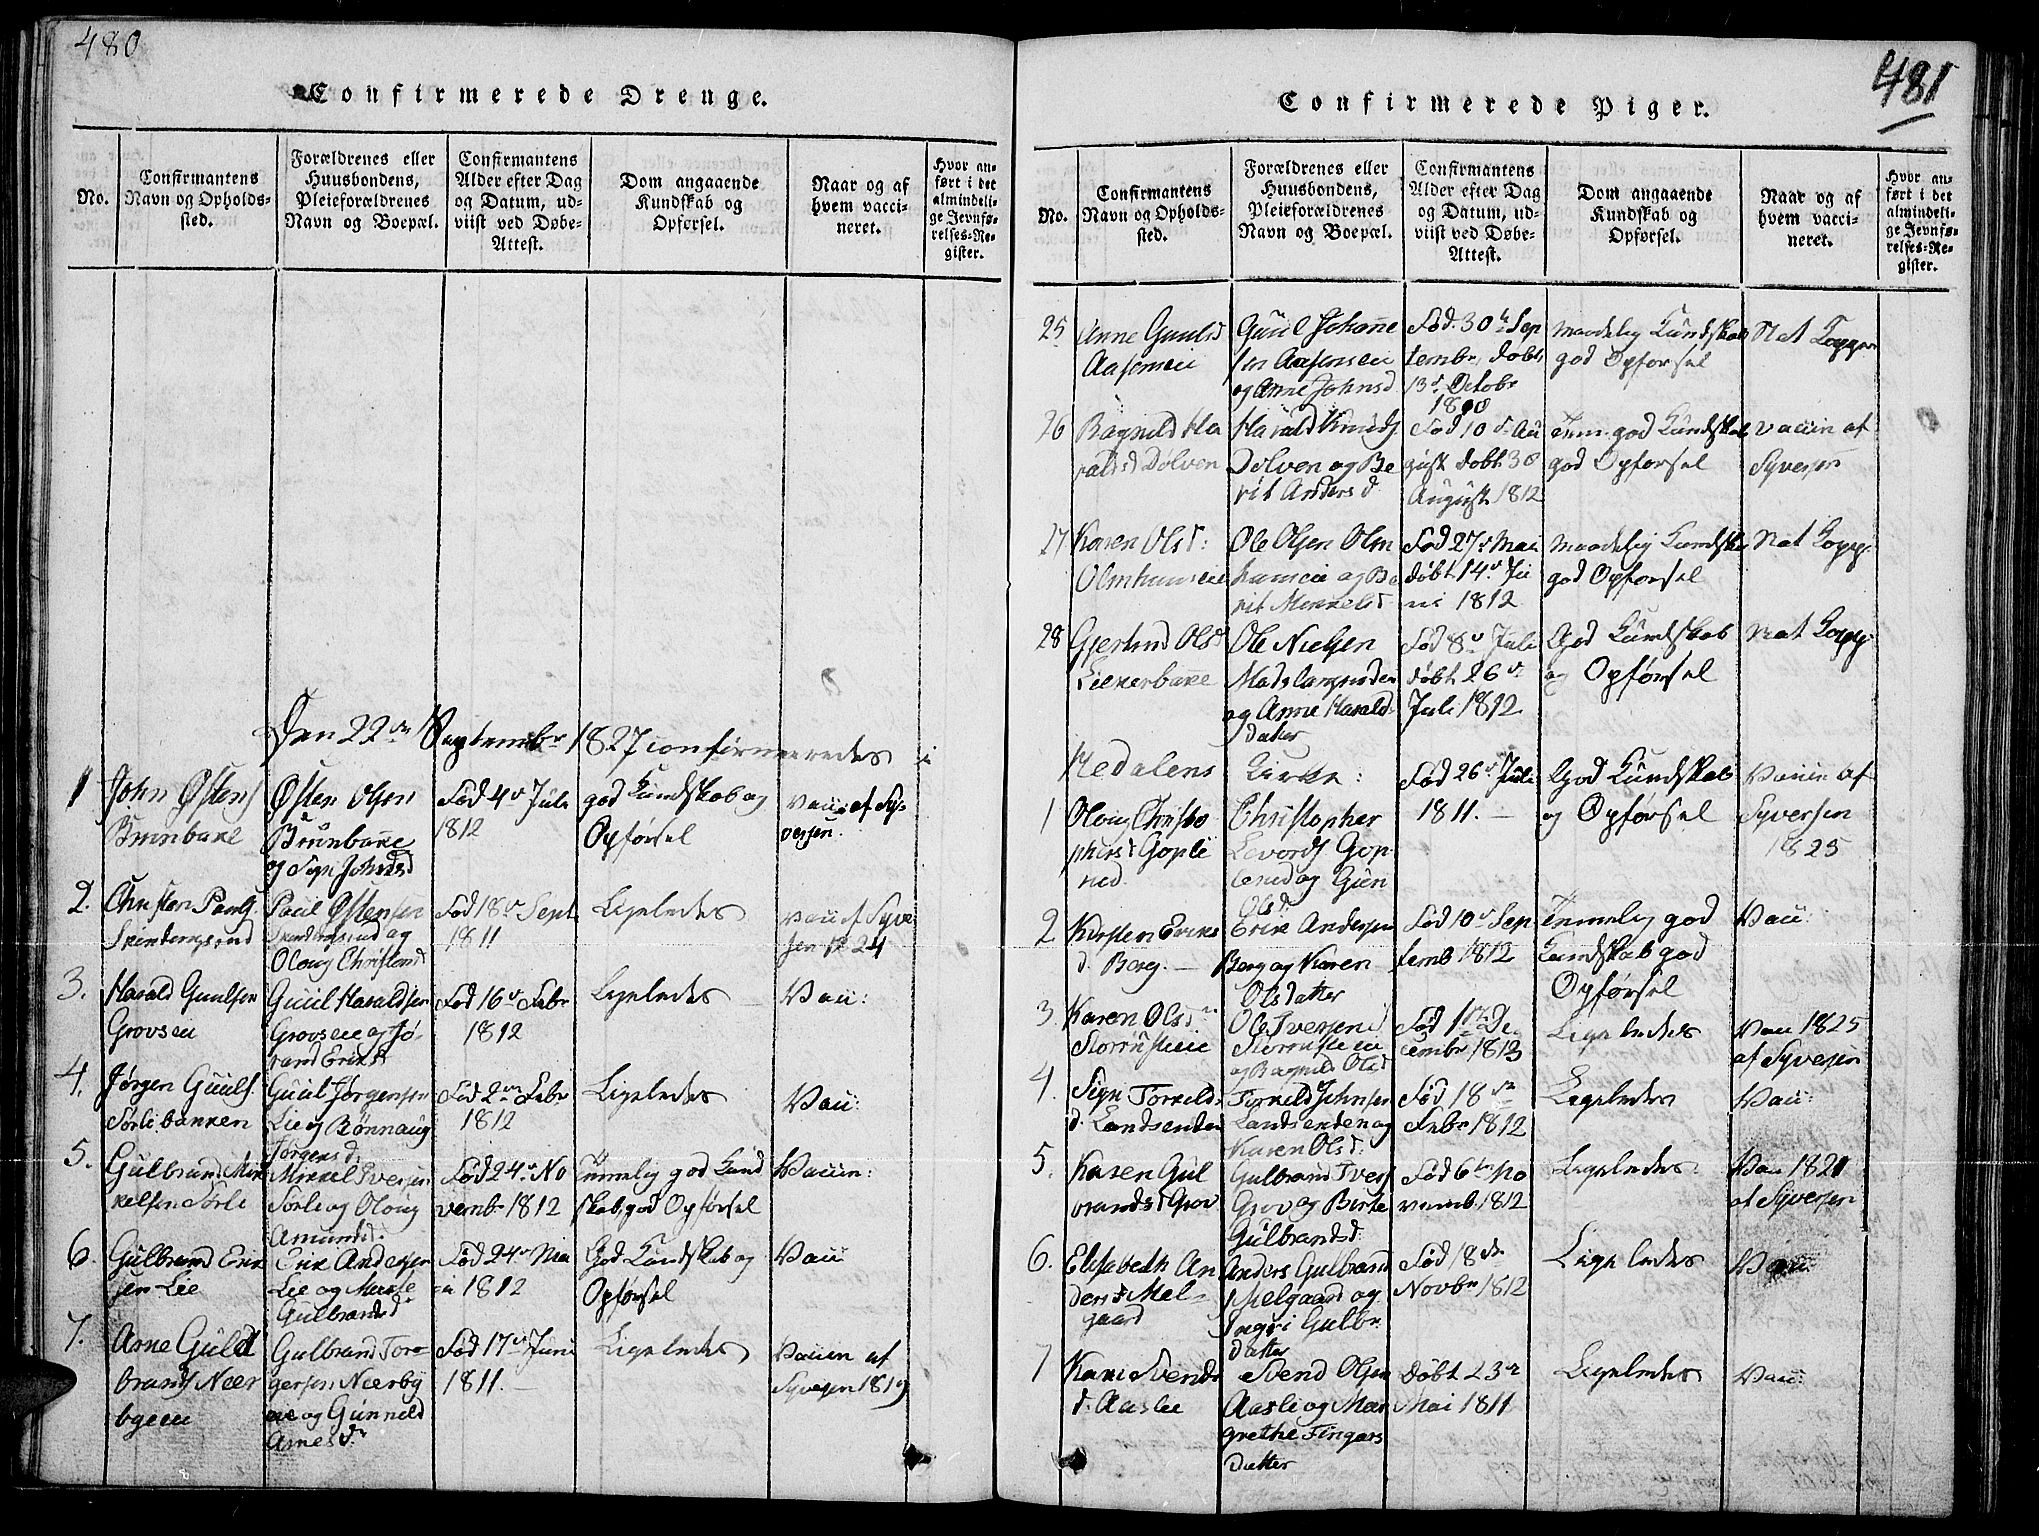 480
Confirmerede Drenge.
No.
Confirmantens
Navn og Opholds-
sted.
Forældrenes eller
Huusbondens,
Pleieforældrenes
Navn og Boepæl.
Confirmantens
Alder efter Dag
og Datum, ud-
viist ved Døbe-
Attest.
Dom angaaende
Kundskab og
Opførsel.
Naar og af
hvem vacci-
neret.
Hvor an-
ført i det
almindeli-
ge Jevnfø-
relses-Re-
gister.
Den 22de Septembr 1827 confirmeredes i
1
John Østens
Brunbakke
Østen Olsen
Brunbakke
og Sigri Johnsd
Fød 4de Juli
1812
god Kundskab og
Opførsel
Vacc af Sy-
versen.
2.
Christen Pauls.
Skindengsrud
Paul Østensen
Skindengsrud og
Oloug Christensd
Fød 18de Sept
1811
Ligeledes
Vacc af Syve
sen 1824
3.
Harald Guulsen
Grovseie
Guul Haraldsen
Grovseie og Jø-
rand Eriksd
Fød 16de Febr
1812
Ligeledes
Vacc:
4.
Jørgen Guuls.
Sørlibakken
Guul Jørgensen
Lie og Rønnaug
Jørgensd:
Fød 2den Febr
1812
Ligeledes
Vacc:
5.
Gulbrand Mik
kelsen Sørli
Mikkel Iversen
Sørli og Oloug
Amundsd.
Fød 24de No
vembr 1812
Temmelig god Kund
skab, god Opførsel
Vaccin:
6.
Gulbrand Erik
sen Lie
Erik Andersen
Lie og Marte
Gulbrandsd
Fød 24de Ma
i 1812
God Kundskab og
Opførsel
Vacc
7.
Arne Guld
brands Nær
byeeie
Gulbrand Tor-
gersen Nærby
eie og Gunnild
Arnesdr
Fød 17de Juni
1811.
Ligeledes
Vaccin af
Syversen 1819
481
Confirmerede Piger.
No.
Confirmantens
Navn og Opholds-
sted.
Forældrenes eller
Huusbondens,
Pleieforældrenes
Navn og Boepæl.
Confirmantens
Alder efter Dag
og Datum, ud-
viist ved Døbe-
Attest.
Dom angaaende
Kundskab og
Opførsel.
Naar og af
hvem vacci-
neret.
Hvor an-
ført i det
almindeli-
ge Jevnfø-
relses-Re-
gister.
25
Anne Guulsd
Aasenseie
Guul Johanne
sen Aasenseie
og Anne Johnsd
Fød. 30te Sep
tembr, døbt
13de Octobr
18
maadelig Kundskab
god Opførsel
Nat Kopper
26
Ragnild Ha
raldsd Dølven
Harald Knuds
Dølven og Be
rit Andersd
Fød 10de Au
gust døbt 30
August 1812
Tem. god Kundskab
god Opførsel
Vaccin af
Syversen
27
Karen Olsd:
Olmhuuseie
Ole Olsen Olm
huuseie og Be
rit Mikkelsd
Fød 27de Mai
døbt 14de Ju
ni 1812
maadelig Kundska
god Opførsel
Nat Kopp.
28
Gjertrud Olsd
Liekerbakke
Ole Nielsen
og Anne Harald-
datter
Fød 8de Juli
døbt 26de
Juli 1812
God Kundskab
og Opførsel
Nat Kopp
Hedalens Kirke:
1
Oloug Christo
phersd Gople
rud
Christopher
Sevards Gop
lerud og Gun
Olsd
Fød 26de Juli
1811.
God Kundskab
og Opførsel
Vaccin af
Syversen
1825
2
Kirsten Eriks
d. Berg.
Erik Andersen
Berg og Karen
Olsdatter
Fød 10de Sep
temb 1812
Temmelig god
Kundskab god
Opførsel
Vacc:
3
Karen Olsdr
Storrusteie
Ole Iversen
Storrusteeie
og Ragnild Olsd
Fød 17de De
cembr 1813
Ligeledes
Vacc 1825
af Syversen
4.
Sigri Torkilds
d. Landsenden
Torkild Johnsen
Landsenden og
Karen Olsd:
Fød 18de
Febr 1812
Ligeledes
Vacc:
5.
Karen Gul
brandsd Grov
Gulbrand Ivers
Grov og Birte
Gulbrandsd:
Fød 6te No
vemb. 1812
Ligeledes
Vacc 1821
af Syversen
6.
Elisabeth An
dersd Mel-
gaard
Anders Gulbrand
s Melgaard og
Ingri Gulbr.
datter
Fød 18de
Novbr 1812
Ligeledes
Vacc
7
Kari Svends
d. Aaslie
Svend Olsen
Aasli og Mar
grethe Fingars
datter
Døbt 23de
Mai 1811
Ligeledes
Vacc: